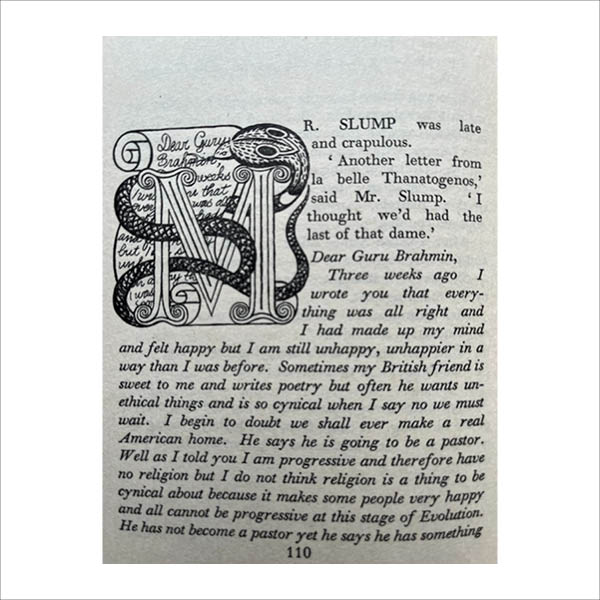 Dear Guru
Brahmin,
weeks
that
was all
but
I was
MR. SLUMP was late
and crapulous.
‘ Another letter from
la belle Thanatogenos,’
said Mr. Slump. ‘ I
thought we’d had the
last of that dame.’
Dear Guru Brahmin,
Three weeks ago I
wrote you that every-
thing was all right and
I had made up my mind
and felt happy but I am still unhappy, unhappier in a
way than I was before. Sometimes my British friend is
sweet to me and writes poetry but often he wants un-
ethical things and is so cynical when I say no we must
wait. I begin to doubt we shall ever make a real
American home. He says he is going to be a pastor.
Well as I told you I am progressive and therefore have
no religion but I do not think religion is a thing to be
cynical about because it makes some people very happy
and all cannot be progressive at this stage of Evolution.
He has not become a pastor yet he says he has something
110